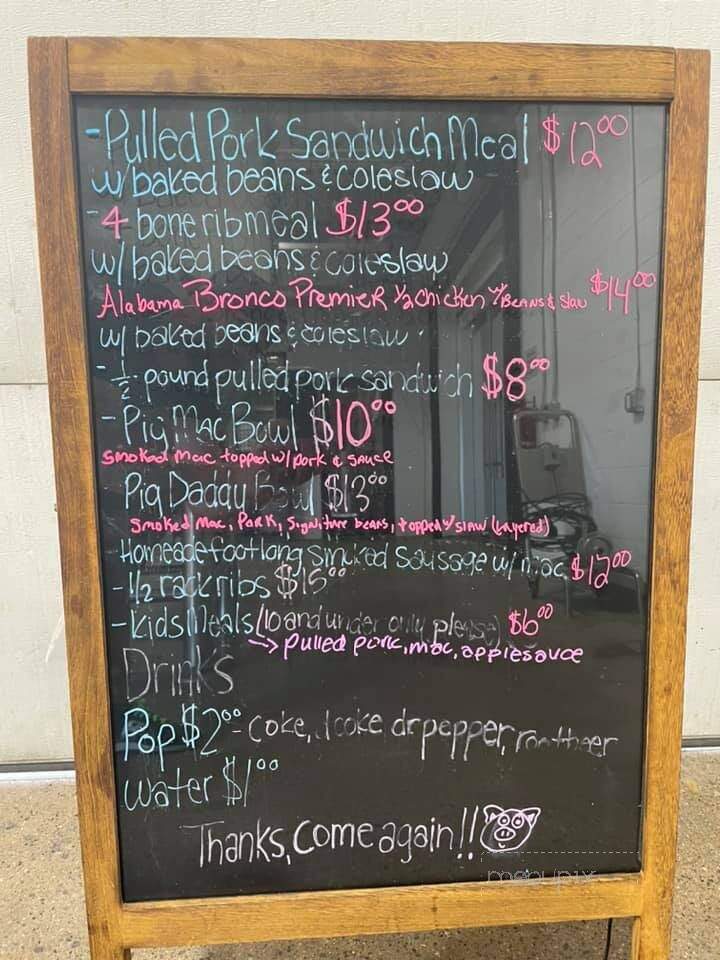 -Pulled Pork Sandwich Meal $12⁰⁰
w/baked beans & coleslaw
-4 bone rib meal $13⁰⁰
w/ baked beans & coleslaw
Alabama Bronco Premier 1/2 chicken w/Beans & Slaw $14⁰⁰
w/ baked beans & coleslaw
-1/2 pound pulled pork sandwich $8⁰⁰
-Pig Mac Bowl $10⁰⁰
smoked mac topped w/pork & sauce
Pig Daddy Bowl $13⁰⁰
Smoked Mac, Pork, Signiture beans, topped w/ slaw (Layered)
-Homeade footlong smoked sausage w/mac $12⁰⁰
-1/2 rack ribs $15⁰⁰
-Kids Meals (10 and under only please) $6⁰⁰
→ pulled pork, mac, applesauce
Drinks
Pop $2⁰⁰- coke, dcoke, dr pepper, rootbeer
Water $1⁰⁰
Thanks, Come again!!
menupix